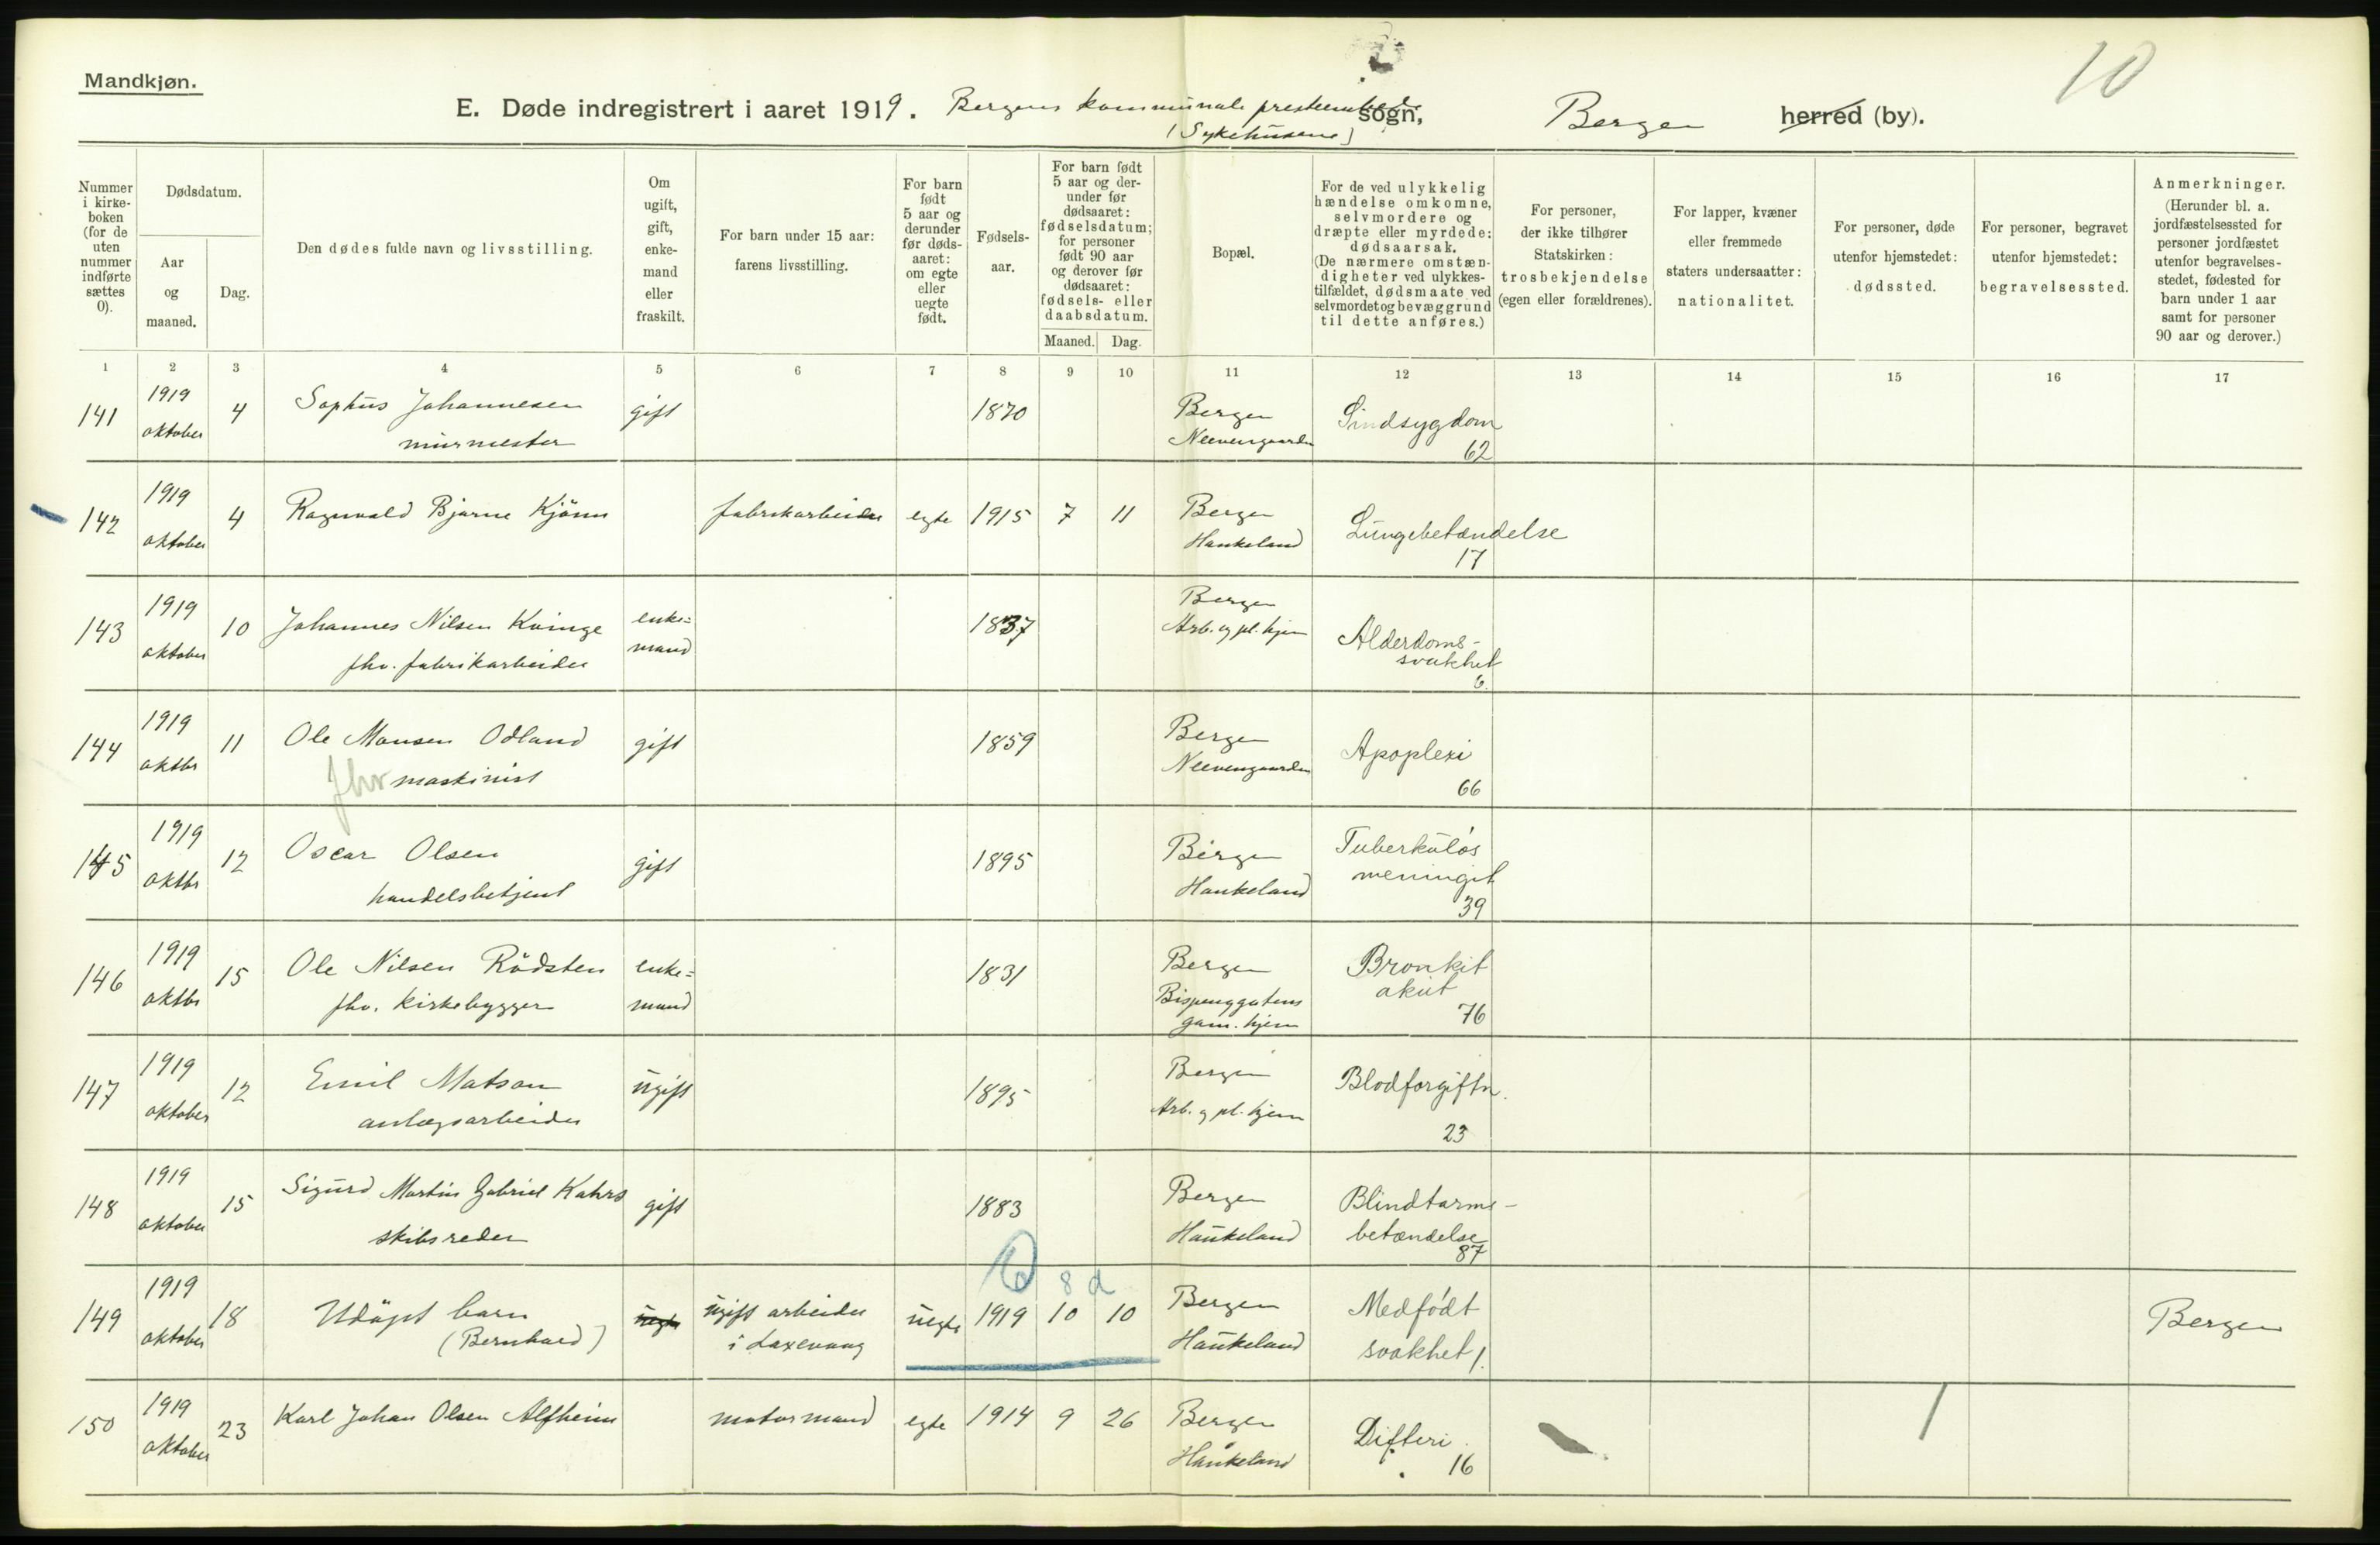 Mandkjøn.
10
E. Døde indregistrert i aaret 1919. Bergens kommunale presteembede sogn, Bergen herred (by).
(Sykehusene)
Nummer i kirke-boken (for de uten nummer indførte sættes 0).
Dødsdatum.
Aar og maaned.
Dag.
Den dødes fulde navn og livsstilling.
Om ugift, gift, enke-mand eller fraskilt.
For barn under 15 aar: farens livsstilling.
For barn født 5 aar og derunder før døds-aaret: om egte eller uegte født.
Fødsels-aar.
For barn født 5 aar og der-under før dødsaaret: fødselsdatum; for personer født 90 aar og derover før dødsaaret: fødsels- eller daabsdatum.
Maaned.
Dag.
Bopæl.
For de ved ulykkelig hændelse omkomne, selvmordere og dræpte eller myrdede: dødsaarsak. (De nærmere omstæn-digheter ved ulykkes-tilfældet, dødsmaate ved selvmordet og bevæggrund til dette anføres.)
For personer, der ikke tilhører Statskirken: trosbekjendelse (egen eller forældrenes).
For lapper, kvæner eller fremmede staters undersaatter: nationalitet.
For personer, døde utenfor hjemstedet: dødssted.
For personer, begravet utenfor hjemstedet: begravelsessted.
Anmerkninger. (Herunder bl. a. jordfæstelsessted for personer jordfæstet utenfor begravelses-stedet, fødested for barn under 1 aar samt for personer 90 aar og derover.)
1 2 3 4 5 6 7 8 9 10 11 12 13 14 15 16 17
141 1919 oktober 4 Sophus Johannesen murmester gift 1870 Bergen Neevengaarden Sindsygdom 62
142 1919 oktober 4 Ragnvald Bjarne Kjönn fabrikarbeider egte 1915 7 11 Bergen Haukeland Lungebetændelse 17
143 1919 oktober 10 Johannes Nilsen Kvinge fhv. fabrikarbeider enke=mand 1837 Bergen Arb. og pl. hjem Alderdoms-svakhet 6.
144 1919 oktbr 11 Ole Monsen Odland fhv maskinist gift 1859 Bergen Neevengaarden Apoplexi 66
145 1919 oktbr 12 Oscar Olsen handelsbetjent gift 1895 Bergen Haukeland Tuberkuløs meningit 39
146 1919 oktbr 15 Ole Nilsen Rödsten fhv. kirkebygger enke=mand 1831 Bergen Bispenggatens gam. hjem Bronkit akut 76
147 1919 oktober 12 Emil Matson anlægsarbeider ugift 1895 Bergen Arb. og pl. hjem Blodforgiftn. 23
148 1919 oktober 15 Sigurd Martin Gabriel Kahrs skibsreder gift 1883 Bergen Haukeland Blindtarms-betændelse 87
8 d
149 1919 oktober 18 Udöpt barn (Bernhard) uegte ugift arbeider i Laxevaag uegte 1919 10 10 Bergen Haukeland Medfødt svakhet 1. Bergen
150 1919 oktober 23 Karl Johan Olsen Alfheim motormand egte 1914 9 26 Bergen Haukeland Difteri 16